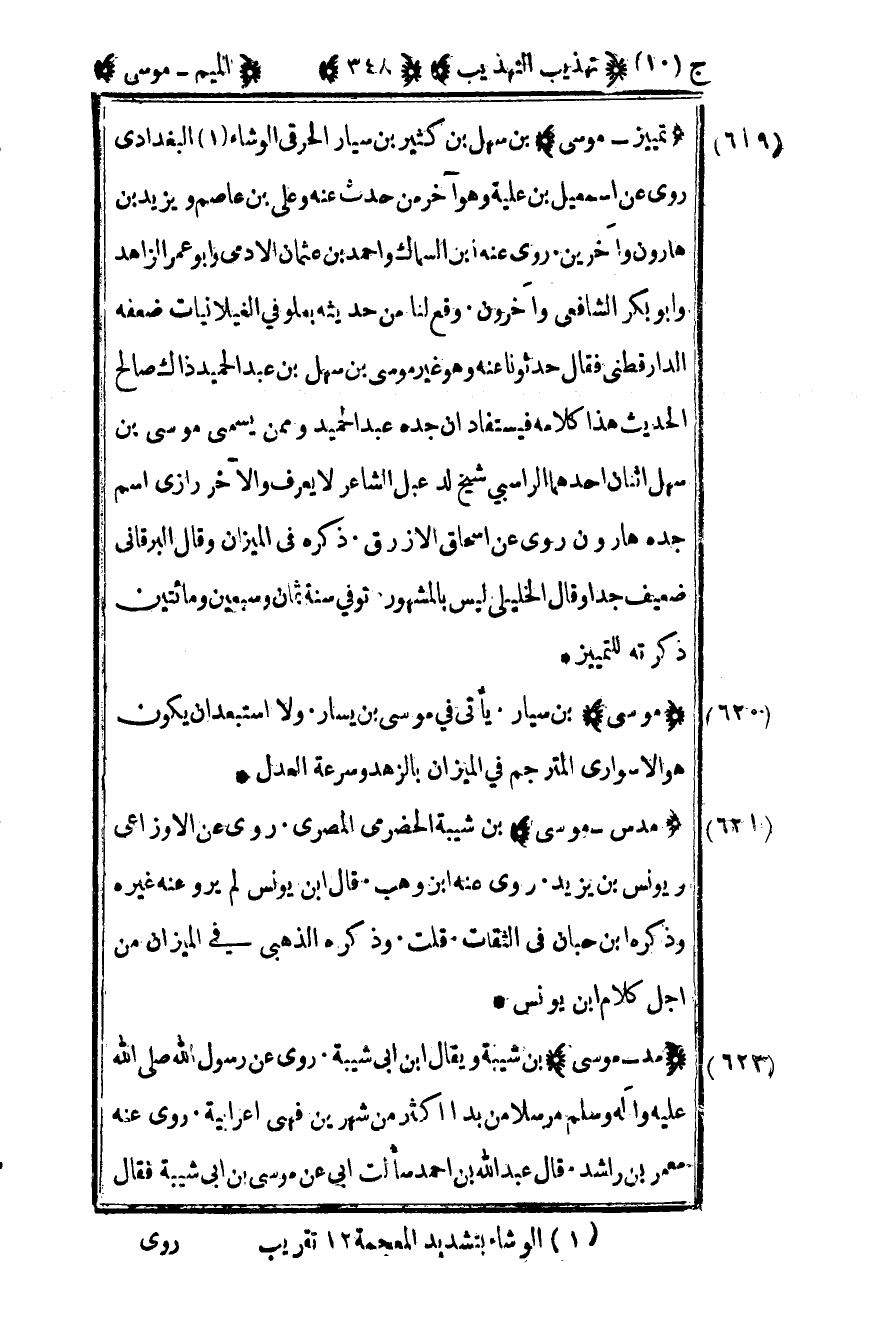 ج (١٠) ﴿ تهذيب التهذيب ﴾ ﴿ ٣٤٨ ﴾ ﴿ الميم - موسى ﴾
(٦١٩) ﴿ تمييز - موسى ﴾ بن سهل بن كثير بن سيار الحرقى الوشاء (١) البغدادى
روى عن اسمعيل بن علية وهو آخر من حدث عنه وعلى بن عاصم ويزيد بن
هارون وآخرين · روى عنه ابن السماك واحمد بن عثمان الادمى وابو عمر الزاهد
وابو بكر الشافعى وآخرون · وقع لنا من حديثه بعلو في الغيلانيات ضعفه
الدارقطنى فقال حدثونا عنه وهو غير موسى بن سهل بن عبد الحميد ذاك صالح
الحديث هذا كلامه فيستفاد ان جده عبد الحميد وممن يسمى موسى بن
سهل اثنان احدهما الراسبي شيخ لد عبل الشاعر لا يعرف والآخر رازى اسم
جده هارون روى عن اسحاق الازرق · ذكره فى الميزان وقال البرقانى
ضعيف جدا وقال الخليلى ليس بالمشهور · توفي سنة ثمان وسبعين ومائتين
ذكرته للتمييز •
(٦٢٠) ﴿ موسى ﴾ بن سيار · يأتى في موسى بن يسار · ولا استبعد ان يكون
هو الاسوارى المترجم في الميزان بالزهد وسرعة العدل •
(٦٢١) ﴿ مدس - موسى ﴾ بن شيبة الحضرمى المصرى · روى عن الاوزاعى
ويونس بن يزيد · روى عنه ابن وهب · قال ابن يونس لم يرو عنه غيره
وذكره ابن حبان فى الثقات · قلت · وذكره الذهبى في الميزان من
اجل كلام ابن يونس •
(٦٢٣) ﴿ مد - موسى ﴾ بن شيبة ويقال ابن ابى شيبة · روى عن رسول الله صلى الله
عليه وآله وسلم مرسلا من بدا اكثر من شهرين فهى اعرابية · روى عنه
معمر بن راشد · قال عبد الله بن احمد سألت ابي عن موسى بن ابى شيبة فقال
(١) الوشاء بتشديد المعجمة ١٢ تقريب روى